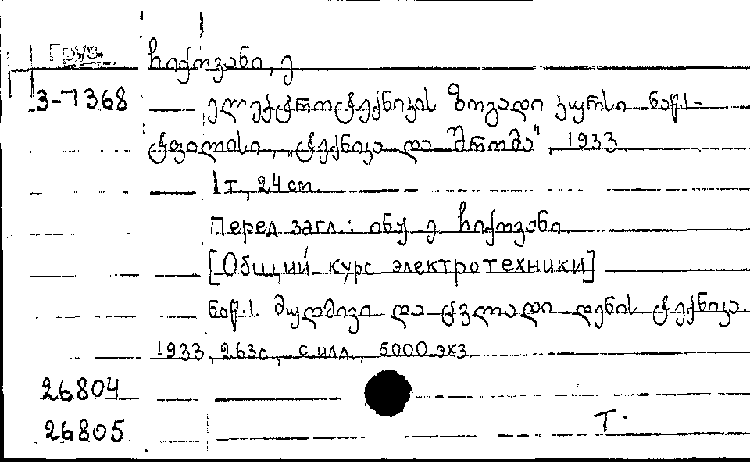 Груз. ჩიქოვანი, ე
3-7368 ელექტროტექნიკის ზოგადი კურსი ნაწ.1-
ტფილისი, „ტექნიკა და შრომა", 1933
1т, 24 cm
Перед загл.: ინჟ ე. ჩიქოვანი
[Общий курс электротехники]
ნაწ.1. მუდმივი და ცვლადი დენის ტექნიკა.
1933, 263с, с илл, 5000 экз
26804
26805 Т.